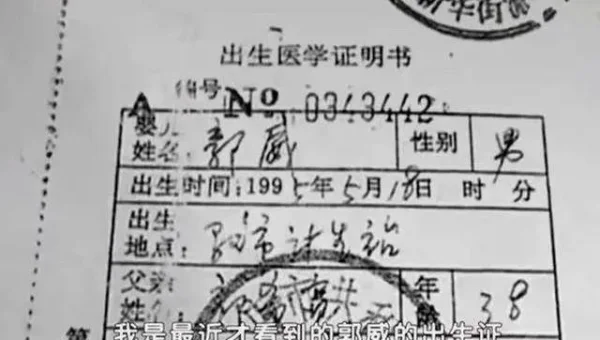 新华街
出生医学证明书
A 编号 No 0343442
婴儿姓名 郭威 性别 男
出生时间:1995年5月18日 时 分
出生地点:
父亲姓名 年龄 38
我是最近才看到的郭威的出生证
第